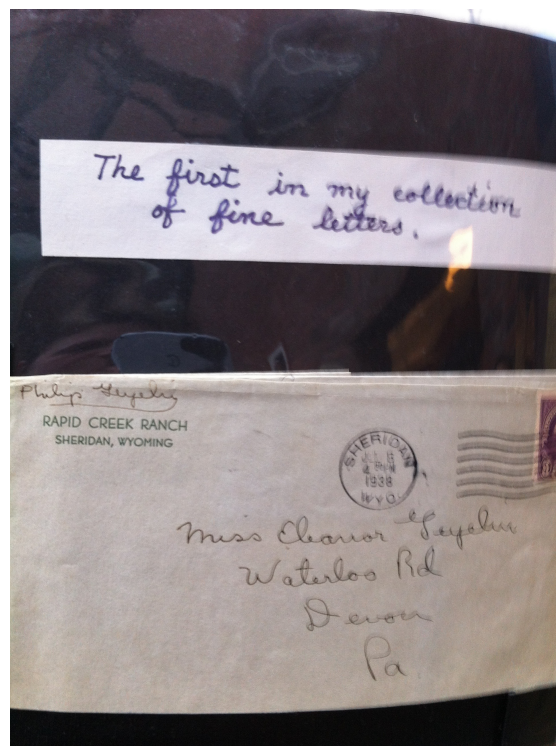 The first in my collection
of fine letters.
Philip Geyelin
RAPID CREEK RANCH
SHERIDAN, WYOMING
SHERIDAN
4 PM
1938
WYO.
Miss Eleanor Geyelin
Waterloo Rd
Devon
Pa